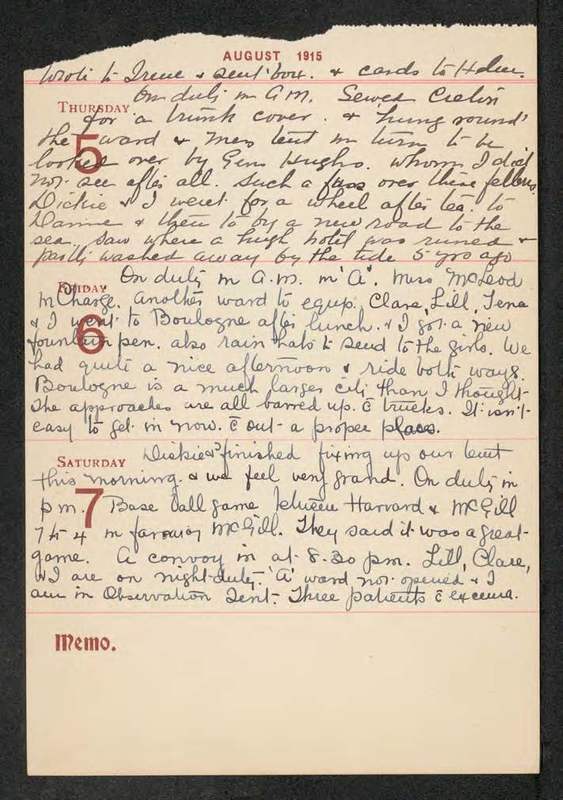 AUGUST 1915
Wrote to Irene & sent box. & cards to Helen.
THURSDAY On duty in a.m. Sewed Cretin
5 for a trunk cover. & hung round
the ward & mess tent in turn to be
looked over by Gen Hughs. whom I did
not see after all. Such a fuss over these fellows.
Dickie & I went for a wheel after tea. to
Danne & then to by a new road to the
sea. Saw where a high hotel was ruined &
partly washed away by the tide 5 yrs ago
FRIDAY On duty in a.m. in "A". Miss McLeod
6 in Charge. Another ward to equip. Clare, Lill, Tena
& I went to Boulogne after lunch. & I got a new
fountain pen. also rain hats to send to the girls. We
had quite a nice afternoon & ride both ways.
Boulogne is a much larger city than I thought
The approaches are all barred up. c̄ trucks. It isn't
easy to get in now. c̄ out a proper pass.
SATURDAY Dickie & I finished fixing up our tent
7 this morning. & we feel very grand. On duty in
p m. Base Ball game between Harvard & McGill
7 to 4 in favour McGill. They said it was a great
game. A convoy in at 8.30 pm. Lill, Clare,
& I are on night duty. 'A' ward not opened & I
am in Observation Tent. Three patients c̄ exzema.
Memo.